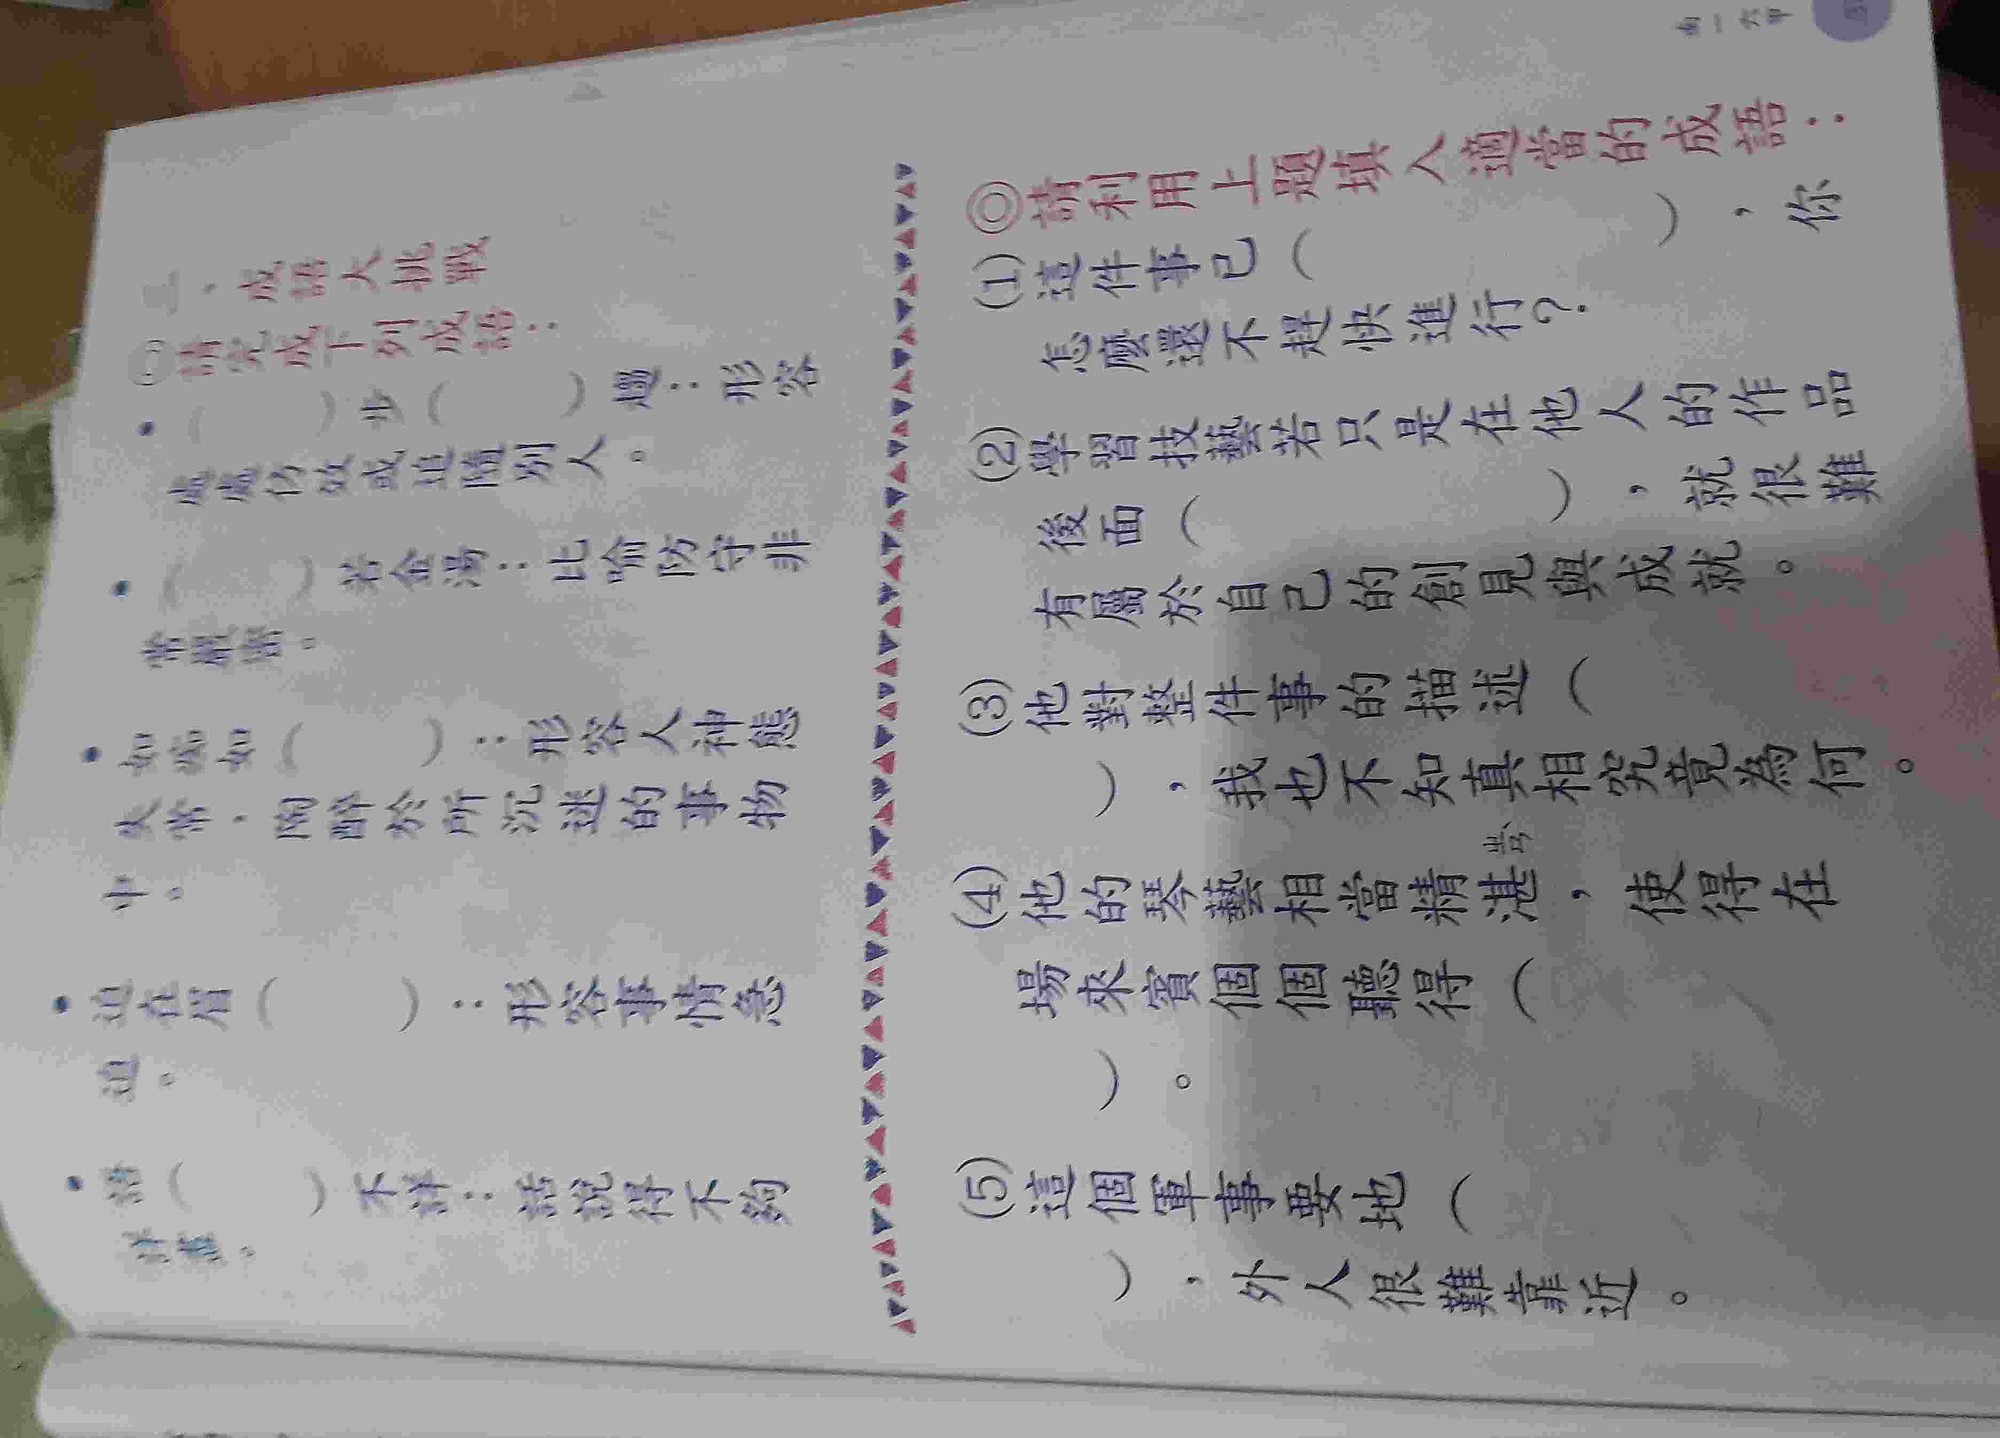 二、成語大挑戰
◎請完成下列成語：
•（　　）步（　　）趨：形容
處處仿效或追隨別人。
•（　　）若金湯：比喻防守非
常嚴密。
•如癡如（　　）：形容人神態
失常，陶醉於所沉迷的事物
中。
•迫在眉（　　）：形容事情急
迫。
•語（　　）不詳：話說得不夠
詳盡。
◎請利用上題填入適當的成語：
(1)這件事已（　　　　），你
怎麼還不趕快進行？
(2)學習技藝若只是在他人的作品
後面（　　　　），就很難
有屬於自己的創見與成就。
(3)他對整件事的描述（
），我也不知真相究竟為何。
(4)他的琴藝相當精湛，使得在
場來賓個個聽得（
）。
(5)這個軍事要地（
），外人很難靠近。